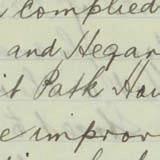 complied
and Hegar
it Path Hou
e improv